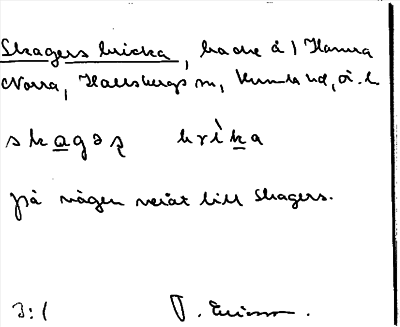 Skagers bricka, backe å 1 Hamra
Norra, Hallsbergs sn, Kumla hd, ö.l.
skagəʂ brìka
på vägen västut till Skagers.
3:1 T. Ericsson.